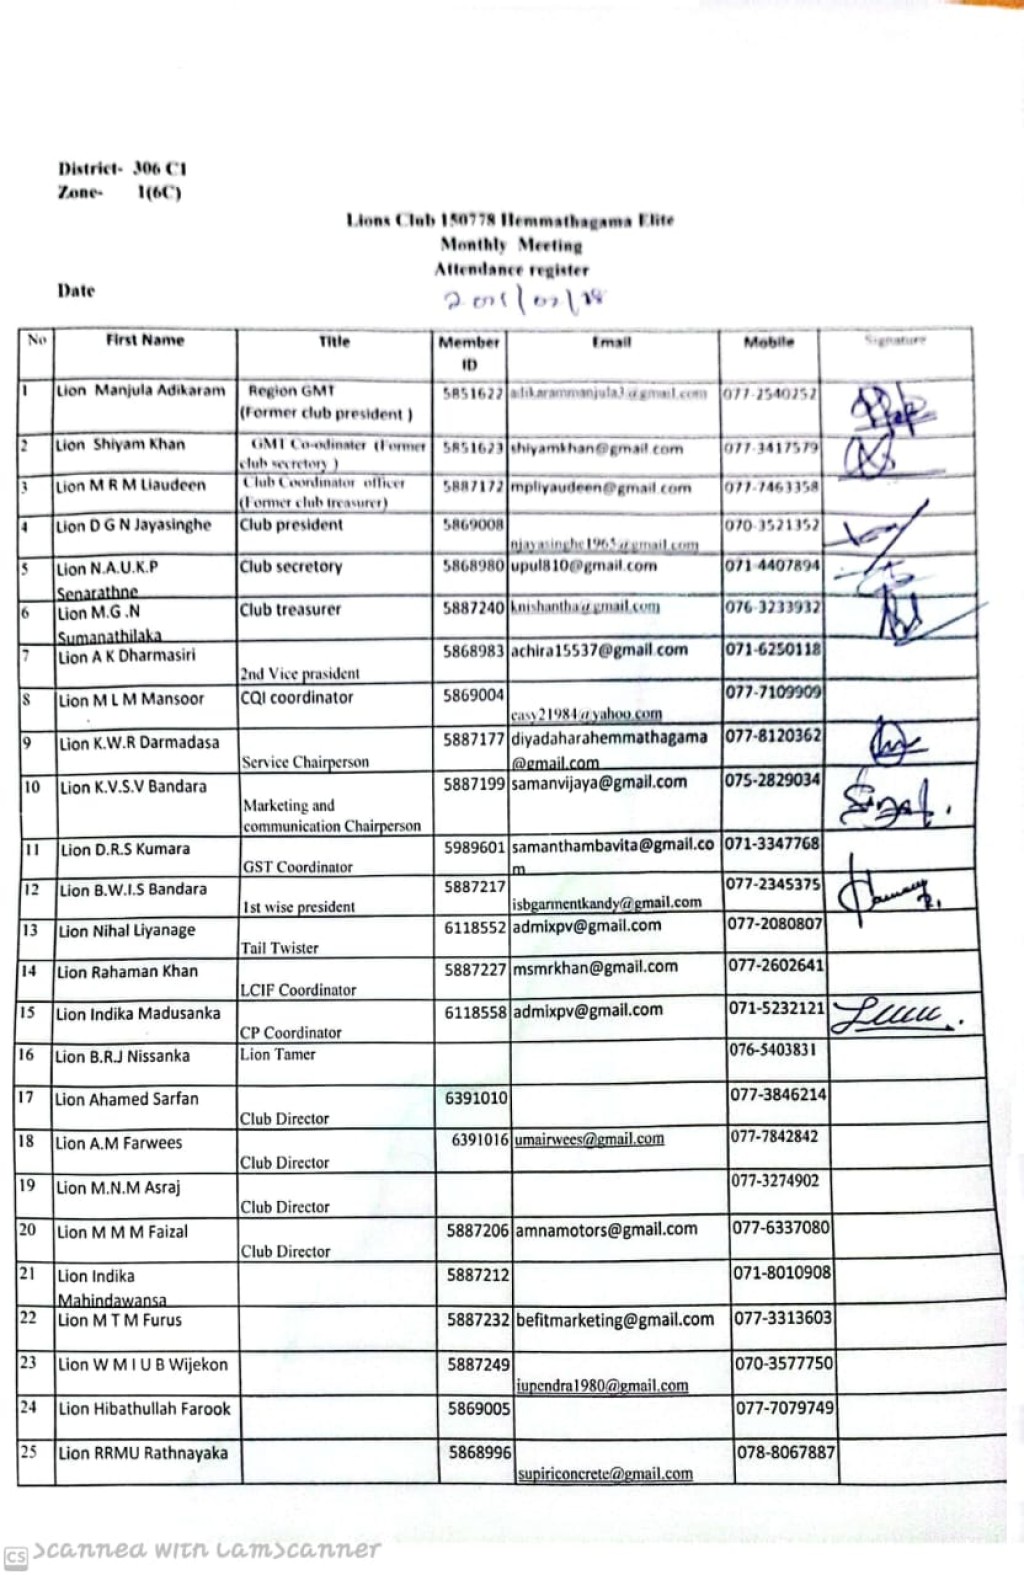 District- 306 C1
Zone- 1(6C)
Lions Club 150778 Hemmathagama Elite
Monthly Meeting
Attendance register
Date
No First Name Title Member ID Email Mobile Signature
1 Lion Manjula Adikaram Region GMT (Former club president ) 5851622 adikarammanjula3@gmail.com 077-2540252
2 Lion Shiyam Khan GMT Co-odinater (Former club secretory ) 5851623 shiyamkhan@gmail.com 077-3417579
3 Lion M R M Liaudeen Club Coordinator officer (Former club treasurer) 5887172 mpliyaudeen@gmail.com 077-7463358
4 Lion D G N Jayasinghe Club president 5869008 njayasinghe1965@gmail.com 070-3521352
5 Lion N.A.U.K.P Senarathne Club secretory 5868980 upul810@gmail.com 071-4407894
6 Lion M.G .N Sumanathilaka Club treasurer 5887240 knishantha@gmail.com 076-3233932
7 Lion A K Dharmasiri 2nd Vice prasident 5868983 achira15537@gmail.com 071-6250118
8 Lion M L M Mansoor CQI coordinator 5869004 easy21984@yahoo.com 077-7109909
9 Lion K.W.R Darmadasa Service Chairperson 5887177 diyadaharahemmathagama@gmail.com 077-8120362
10 Lion K.V.S.V Bandara Marketing and communication Chairperson 5887199 samanvijaya@gmail.com 075-2829034
11 Lion D.R.S Kumara GST Coordinator 5989601 samanthambavita@gmail.com 071-3347768
12 Lion B.W.I.S Bandara 1st wise president 5887217 isbgarmentkandy@gmail.com 077-2345375
13 Lion Nihal Liyanage Tail Twister 6118552 admixpv@gmail.com 077-2080807
14 Lion Rahaman Khan LCIF Coordinator 5887227 msmrkhan@gmail.com 077-2602641
15 Lion Indika Madusanka CP Coordinator 6118558 admixpv@gmail.com 071-5232121
16 Lion B.R.J Nissanka Lion Tamer 076-5403831
17 Lion Ahamed Sarfan Club Director 6391010 077-3846214
18 Lion A.M Farwees Club Director 6391016 umairwees@gmail.com 077-7842842
19 Lion M.N.M Asraj Club Director 077-3274902
20 Lion M M M Faizal Club Director 5887206 amnamotors@gmail.com 077-6337080
21 Lion Indika Mahindawansa 5887212 071-8010908
22 Lion M T M Furus 5887232 befitmarketing@gmail.com 077-3313603
23 Lion W M I U B Wijekon 5887249 iupendra1980@gmail.com 070-3577750
24 Lion Hibathullah Farook 5869005 077-7079749
25 Lion RRMU Rathnayaka 5868996 supiriconcrete@gmail.com 078-8067887
CS Scanned with CamScanner